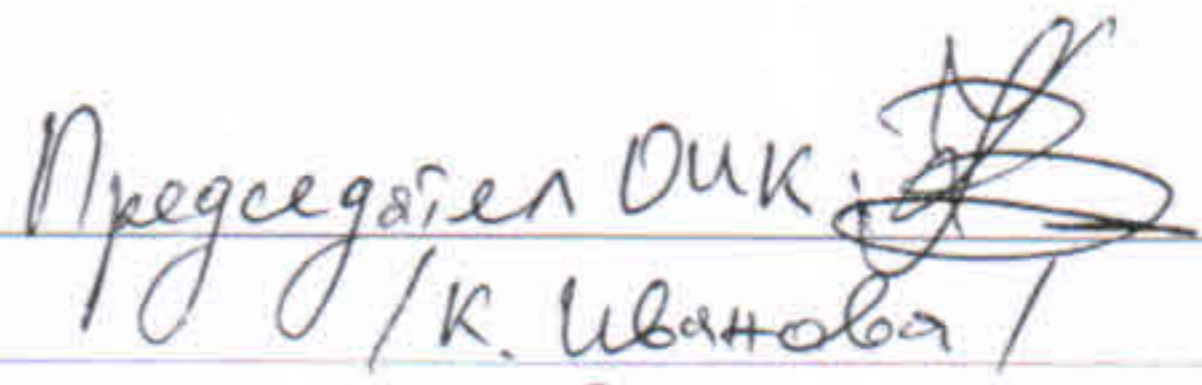 Председател ОИК:
/К. Иванова/